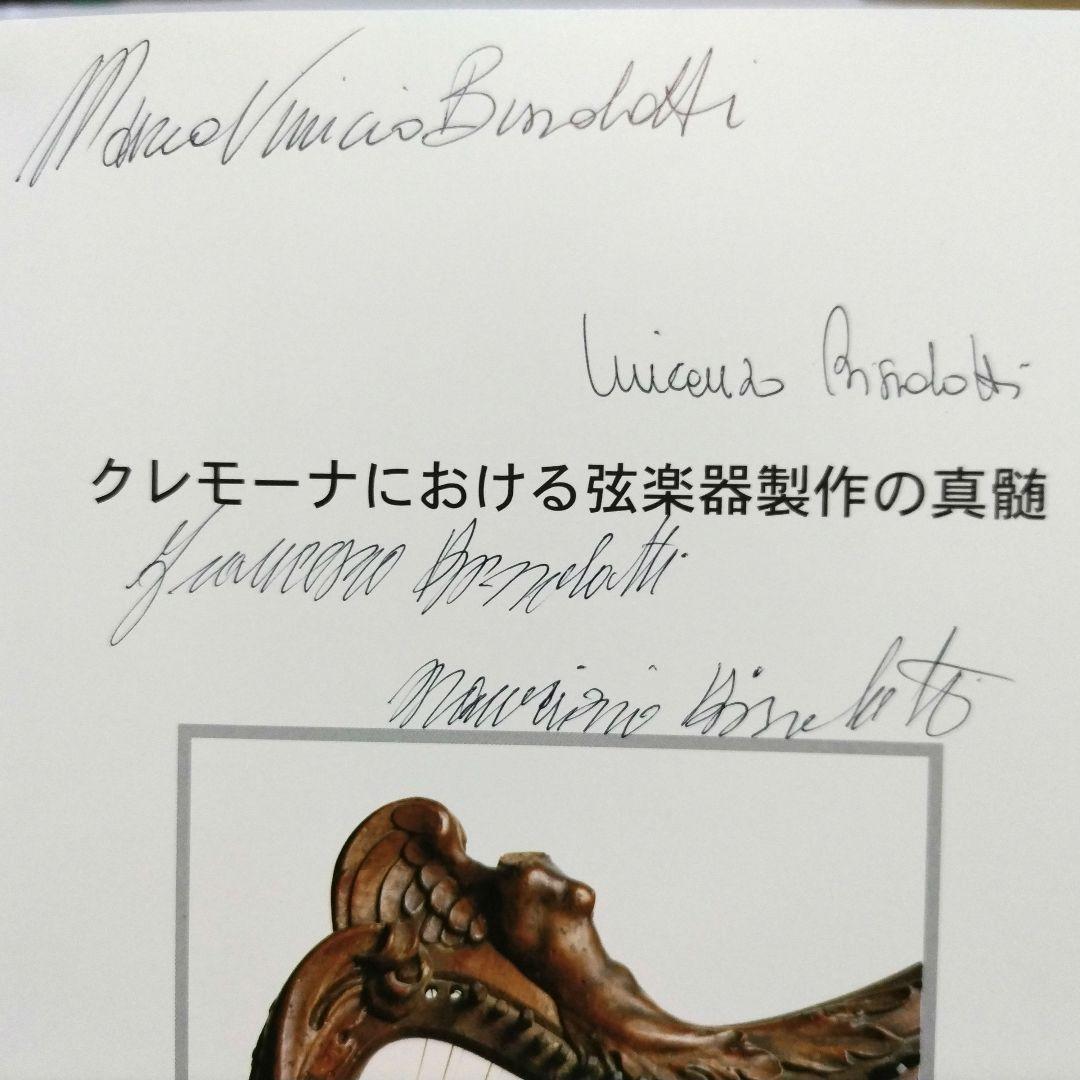 Marco Vinicio Bissolotti
Vincenzo Bissolotti
クレモーナにおける弦楽器製作の真髄
Francesco Bissolotti
Maurizio Bissolotti